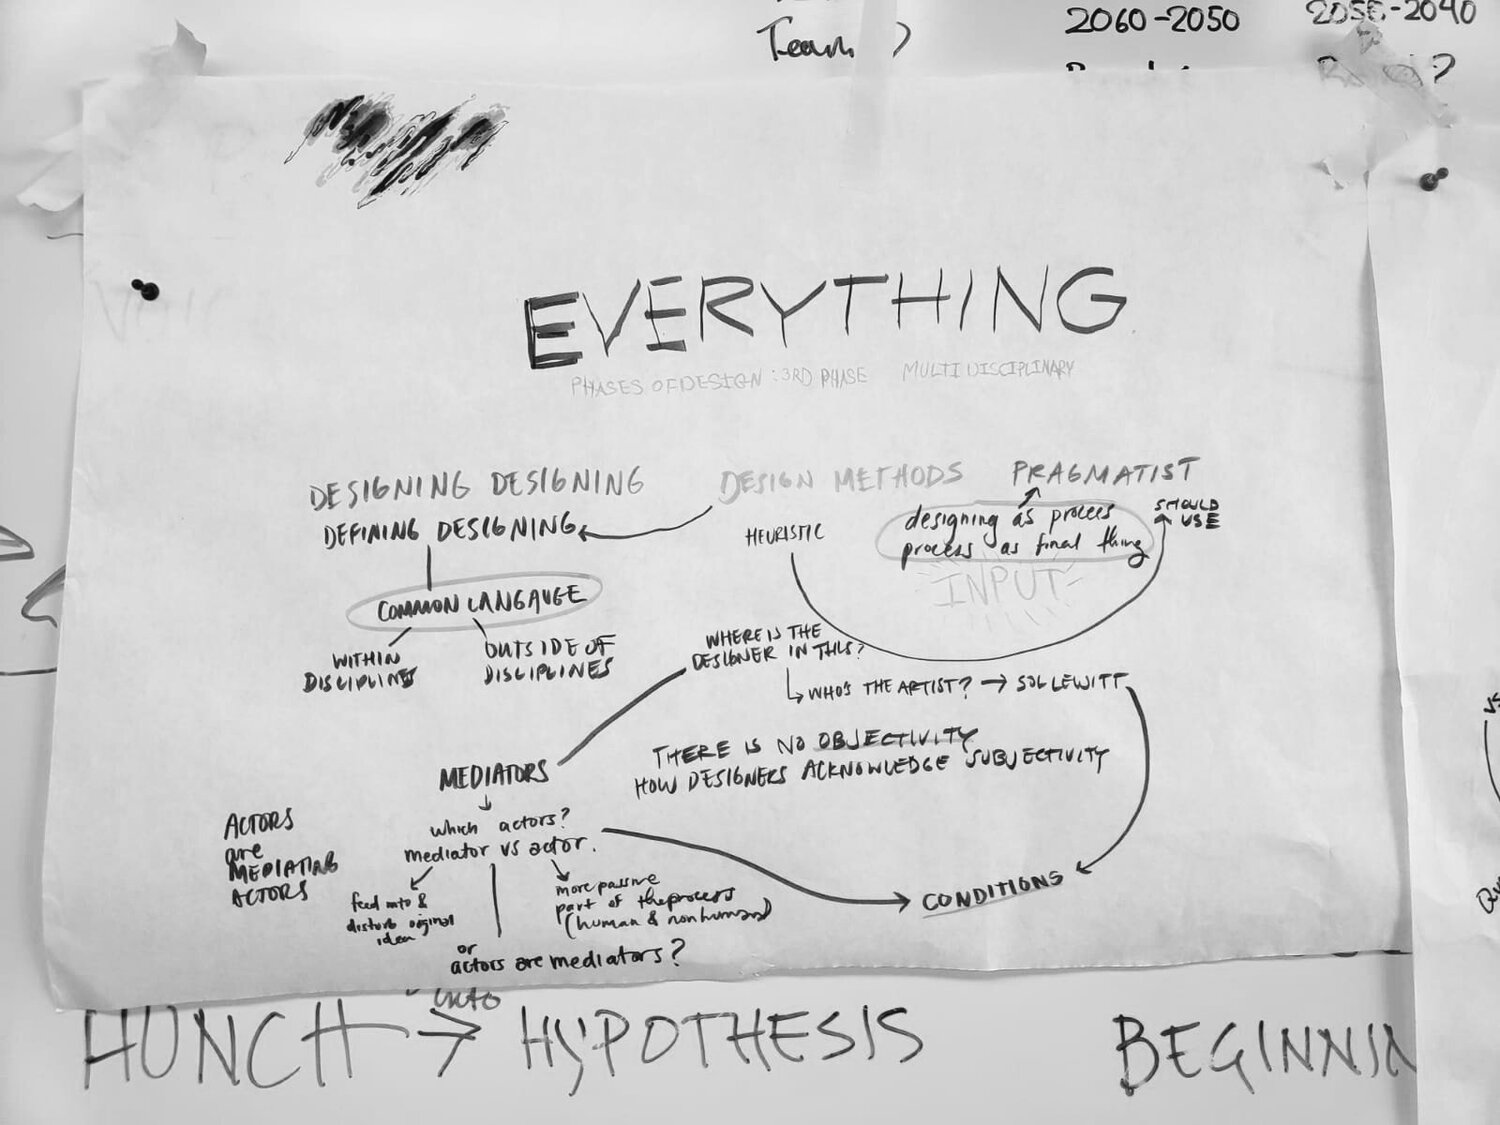 Team ?
2060-2050
2055-2040
EVERYTHING
PHASES OF DESIGN : 3RD PHASE MULTIDISCIPLINARY
DESIGNING DESIGNING
DESIGN METHODS
PRAGMATIST
DEFINING DESIGNING
HEURISTIC
designing as process
process as final thing
SHOULD
USE
INPUT
COMMON LANGAUGE
WITHIN
DISCIPLINES
OUTSIDE OF
DISCIPLINES
WHERE IS THE
DESIGNER IN THIS?
WHO'S THE ARTIST? → SOL LEWITT
THERE IS NO OBJECTIVITY
HOW DESIGNERS ACKNOWLEDGE SUBJECTIVITY
MEDIATORS
which actors?
mediator vs actor.
ACTORS
are
MEDIATING
ACTORS
feed into &
disturb original
idea
more passive
part of the process
(human & nonhuman)
CONDITIONS
or
actors are mediators?
HUNCH → HYPOTHESIS
BEGINNIN